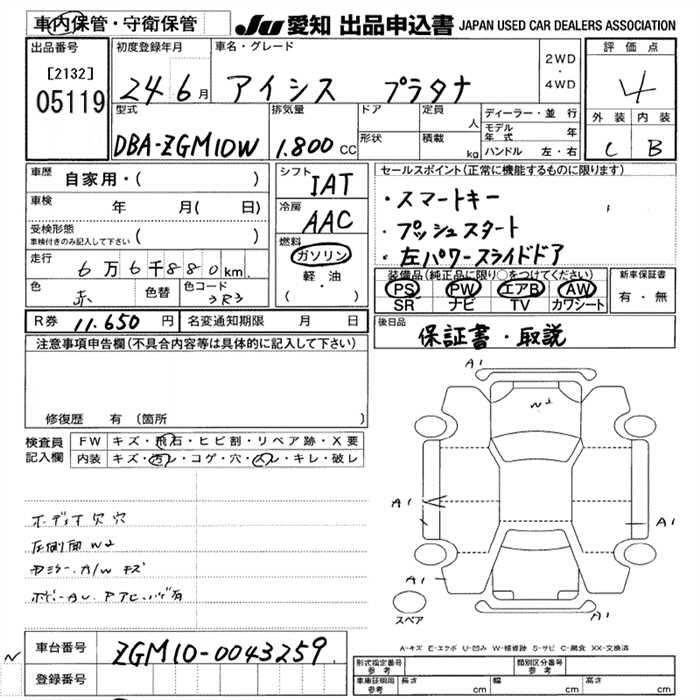 車内保管・守衛保管
JU 愛知 出品申込書 JAPAN USED CAR DEALERS ASSOCIATION
出品番号
[2132]
05119
初度登録年月
24 6月
車名・グレード
アイシス プラタナ
2WD
・
4WD
評価点
4
外装 内装
C B
型式
DBA-ZGM10W
排気量
1.800 CC
ドア
形状
定員
人
積載
kg
ディーラー・並行
モデル年式 年
ハンドル 左・右
車歴 自家用・( )
車検 年 月( 日)
受検形態
車検付きのみ記入して下さい ( )
走行 6万6千880km
色 赤 色替 色コード 3R3
シフト
IAT
冷房
AAC
燃料
ガソリン
軽・油
( ・ )
セールスポイント(正常に機能するものに限ります)
・スマートキー
・プッシュスタート
・左パワースライドドア
装備品(純正品に限り○をつけてください)
PS PW エアB AW
SR ナビ TV カワシート
新車保証書
有・無
R券 11.650円 名変通知期限 月 日
後日品
保証書・取説
注意事項申告欄(不具合内容等は具体的に記入して下さい)
修復歴 有 〔箇所 〕
検査員記入欄
FW キズ・飛石・ヒビ割・リペア跡・X要
内装 キズ・汚レ・コゲ・穴・スレ・キレ・破レ
オーディオ欠穴
左側面W2
A1
W2
A1
A1
A1
A1
スペア
A-キズ E-エクボ U-凹み W-補修跡 S-サビ C-腐食 XX-交換済
車台番号 ZGM10-0043259
登録番号
型式指定番号 参考
類別区分番号 参考
車庫証明用 参考 長さ cm 幅 cm 高さ cm